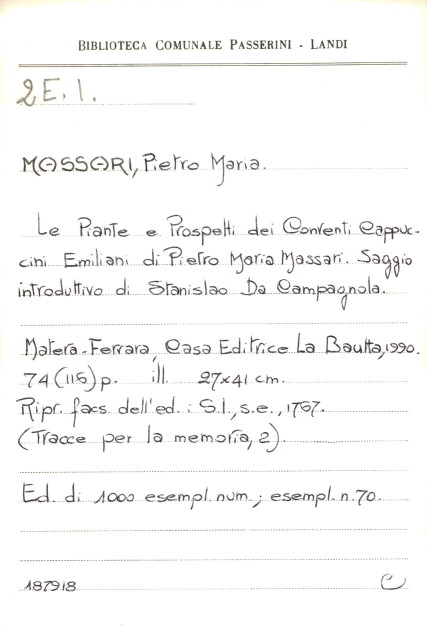 BIBLIOTECA COMUNALE PASSERINI - LANDI
2E.1.
MASSARI, Pietro Maria.
Le Piante e Prospetti dei Conventi Cappuc-
cini Emiliani di Pietro Maria Massari. Saggio
introduttivo di Stanislao Da Campagnola.
Matera-Ferrara, Casa Editrice La Bautta, 1990.
74 (116) p. ill. 27x41 cm.
Ripr. facs. dell'ed.: S.l., s.e., 1767.
(Tracce per la memoria, 2).
Ed. di 1000 esempl. num.; esempl. n. 70.
187918
C